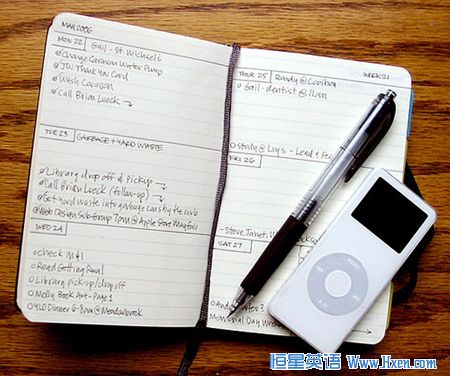 MAY 2006
MON 22 Gail - St. Michael's
Change Caravan Water Pump
JW Thank You Card
Wash Caravan
Call Brian Lueck
TUE 23 GARBAGE + YARD WASTE
Library drop off & pickup
Call Brian Lueck (follow-up)
Get yard waste into garbage cans by the curb
Web Design Sub Group 7pm @ Apple Store Mayfair
WED 24
check M+I
Read Getting Real
Library Pick-up/drop off
Molly Book Art - Page 1
YLO Dinner 6-8pm @ Meadowbrook
THUR 25 Randy @ WEEK 21
Gail - dentist @ 11am
study @ - Lead &
FRI 26
- Steve, Janet,
SAT 27
Memorial Day
恒星英语 Www.Hxen.com